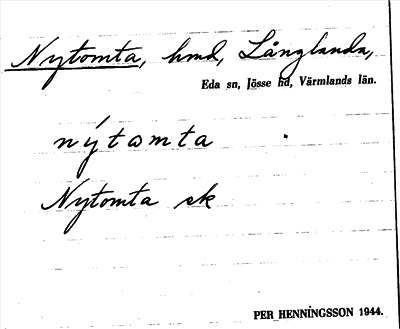 Nytomta, hmd, Långlanda,
Eda sn, Jösse hd, Värmlands län.
nýtomta
Nytomta sk
PER HENNINGSSON 1944.